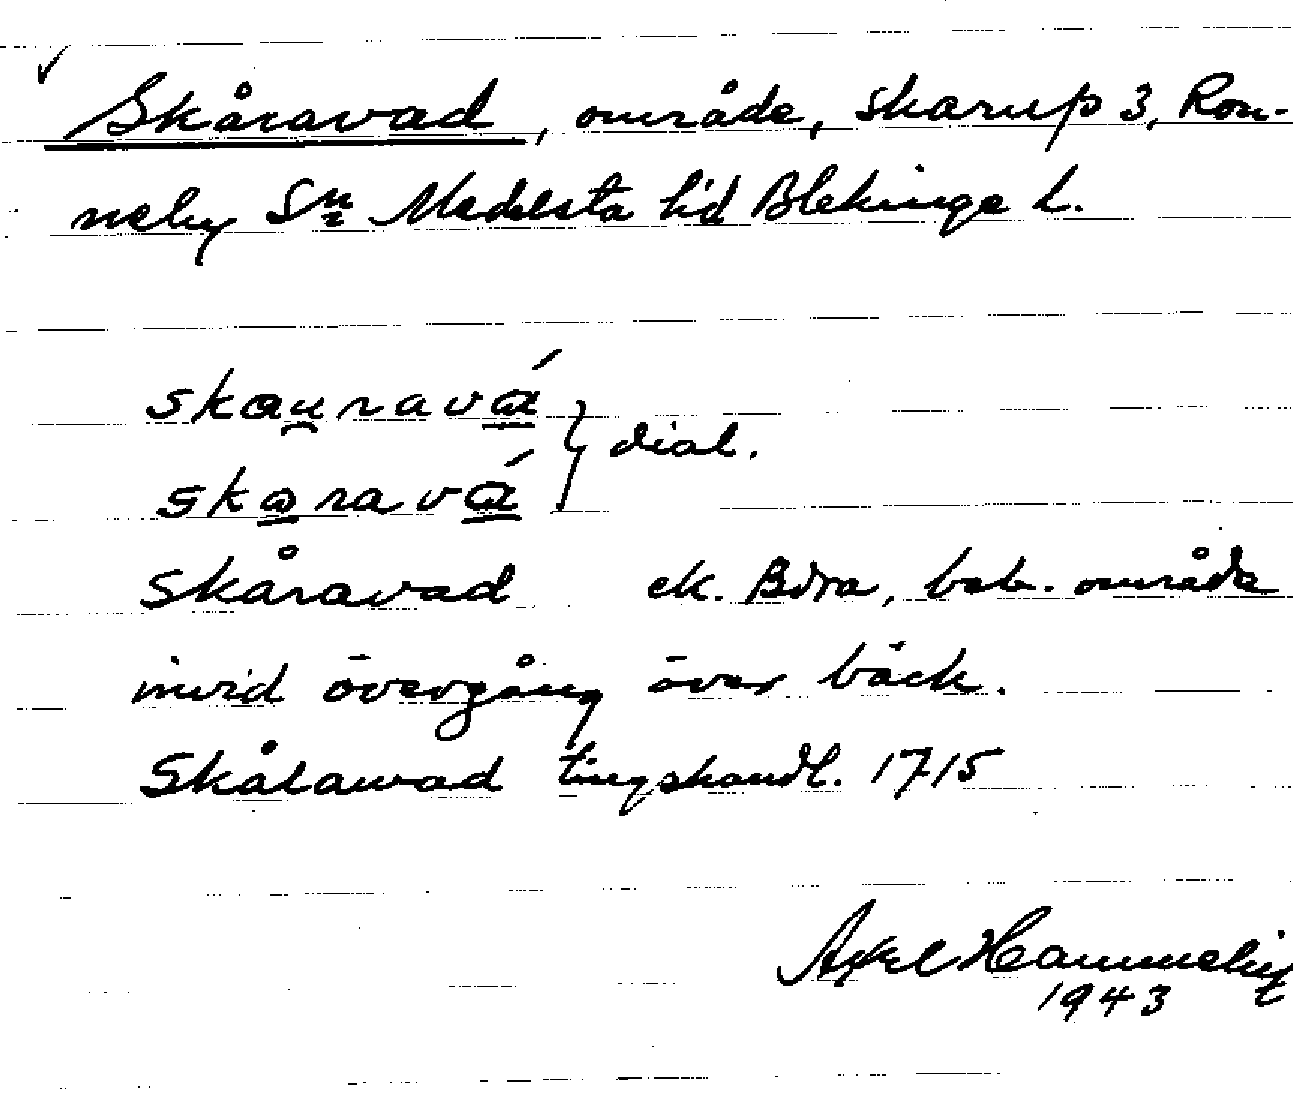 Skåravad, område, Skarup 3, Ron-
neby Sn Medelsta hd Blekinge l.
skauravá
skaravá } dial.
Skåravad ek. Bdra, beb. område
invid övergång över bäck.
Skålawad tingshandl. 1715
Axel Hammelin
1943